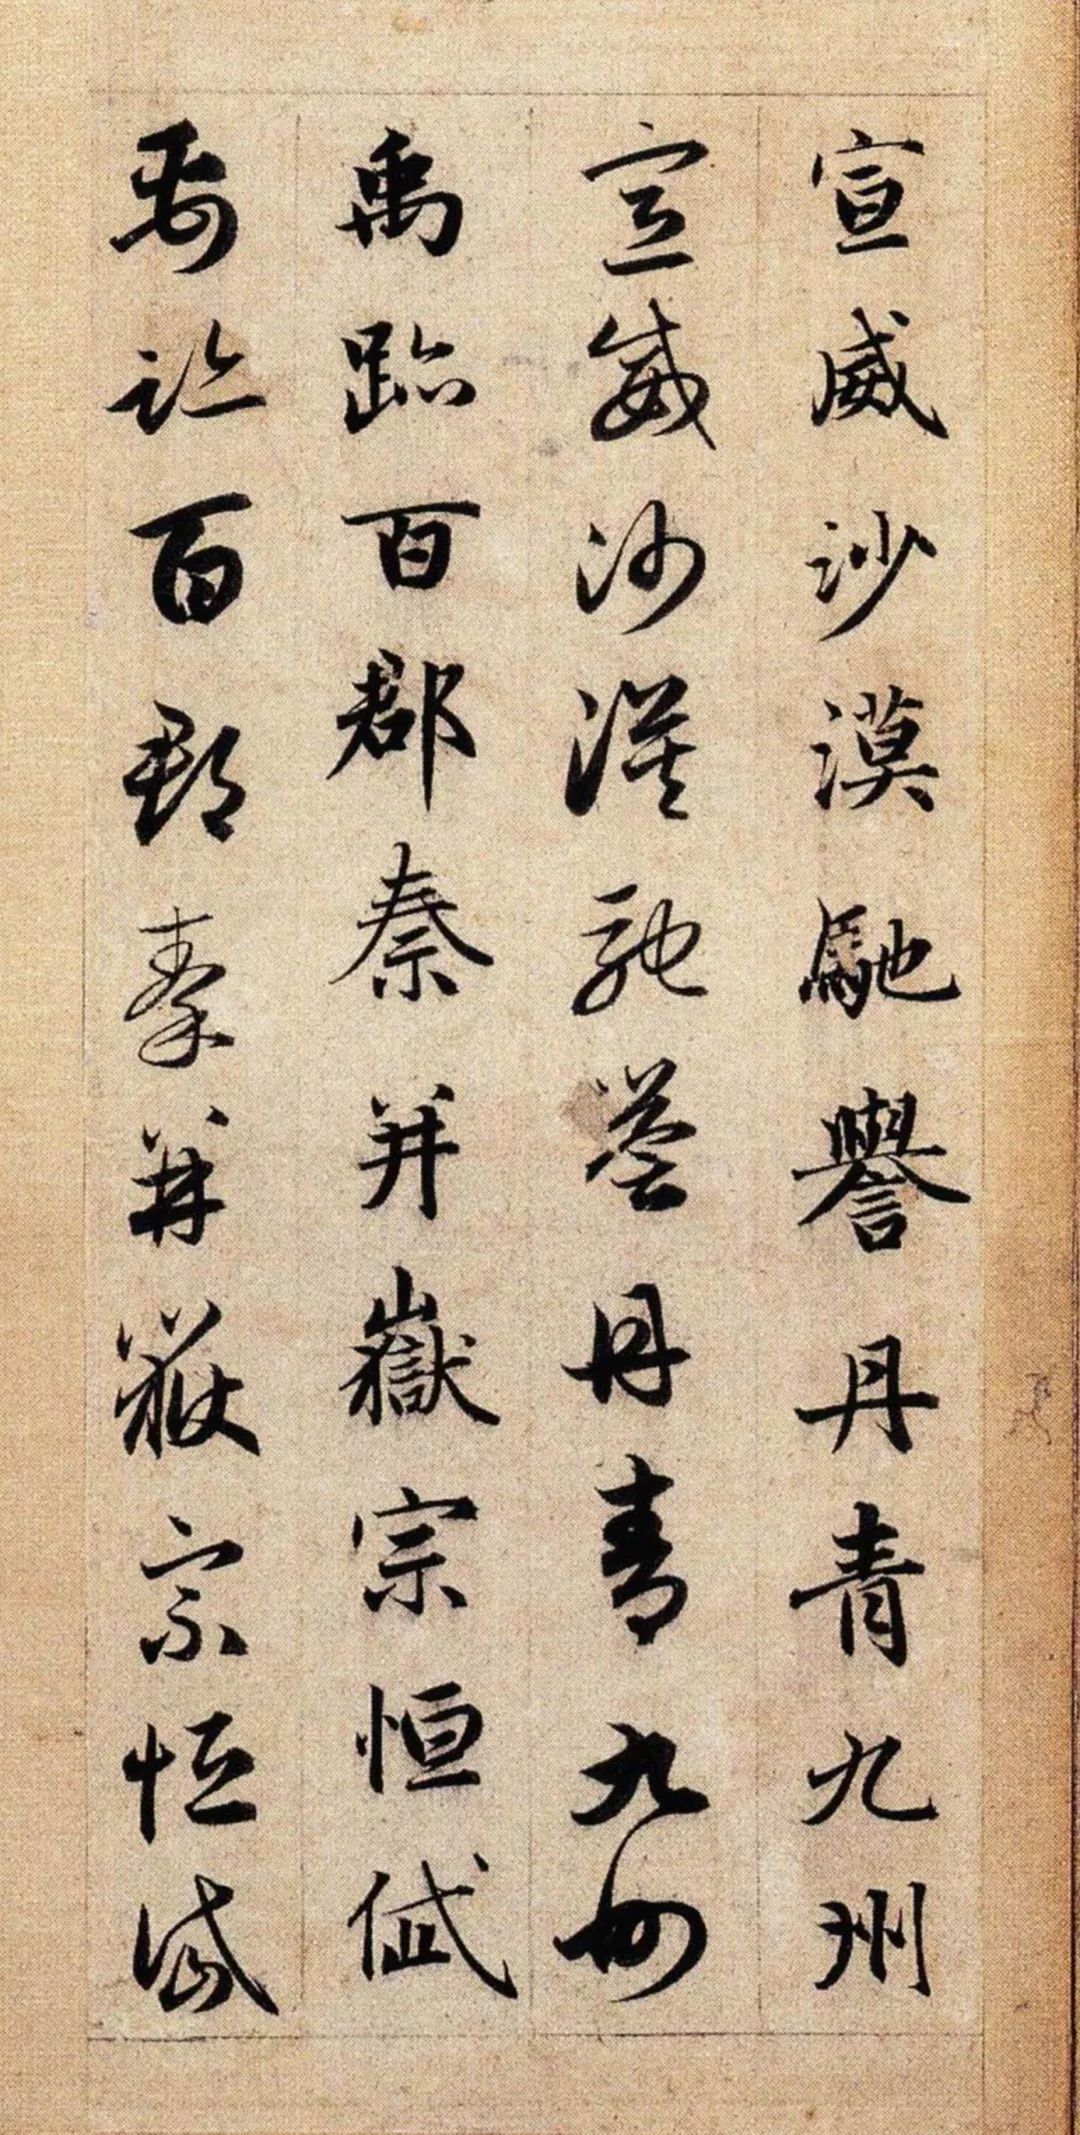 宣威沙漠馳譽丹青九州
宣威沙漠馳譽丹青九州
禹跡百郡秦并嶽宗恒岱
禹跡百郡秦并嶽宗恒岱